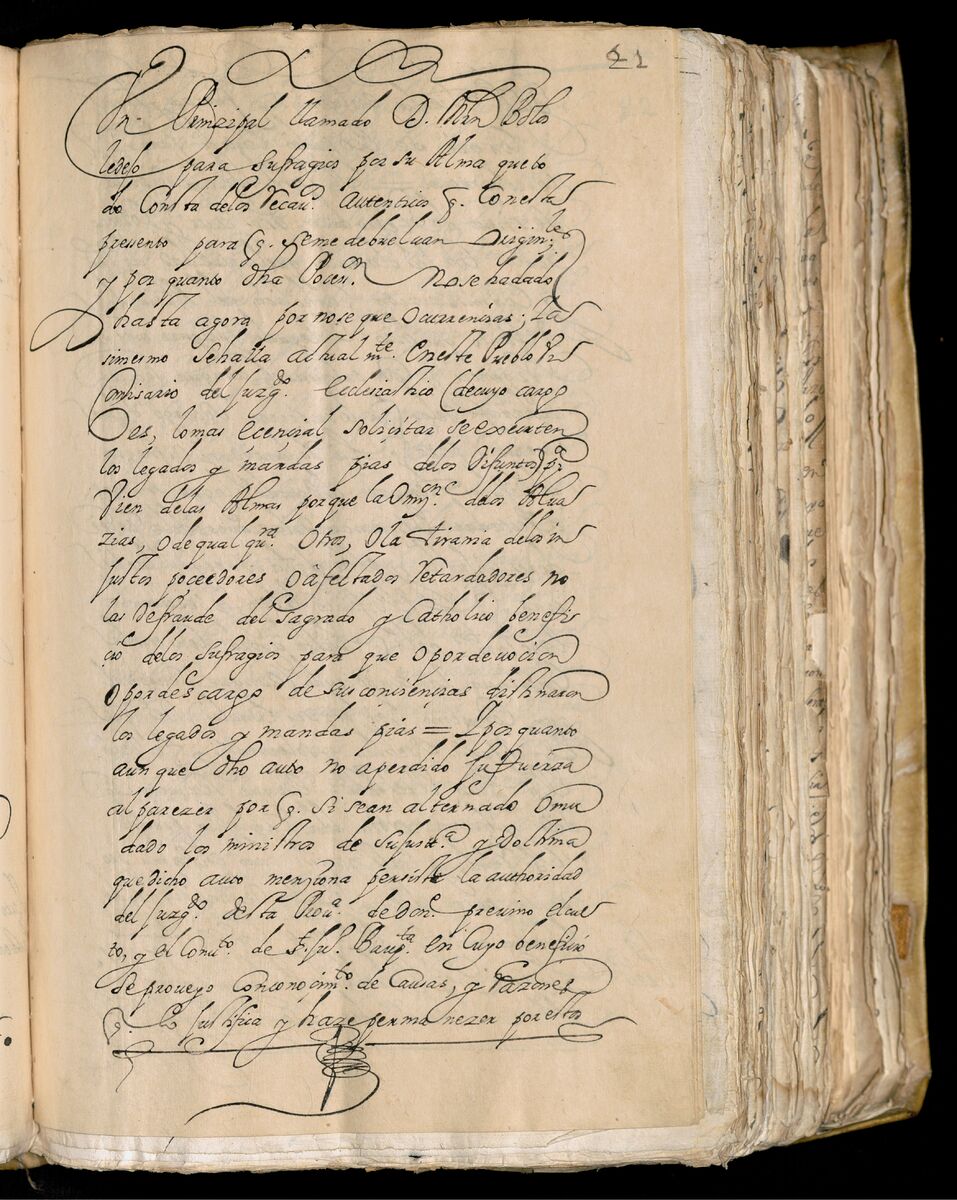 21
Un Principal llamado D. Alºn Polo
ledeso para sufragios por su Alma que to
do Consta delos recauº. Autenticos q. Conestas
presento para q. seme debuelvan origin.les
y por quanto dha Pocerºn. No se ha dado
hasta agora por nose que ocurrencias; Y as
simesmo sehalla actualmte. Eneste Pueblo Un
Comisario del Juzgdo. Ecclesiastico (decuyo cargo
es, lomas ecencial solicitar se executen
los legados y mandas pias delos Difuntos) pª
vien delas Almas porque la Omiçn. delos Alva
zias, o de qual qra. Otros, Ola tirania delos in
justos poceedores O afectados retardadores no
las defraude del sagrado y Catholico benefi
cio delos sufragios para que O por devocion
O por descargo de sus conciencias distinaron
los legados y mandas pias = Y por quanto
aunque dho auto no aperdido su fuerza
al parezer por q. si sean alternado O mu
dado los ministros de Justª y doctrina
que dicho auto menziona persiste la authoridad
del Juzgdo. desta Provª. de donde. previno el cue
to, y el Convto. de S. Ju. Baupta. en Cuyo beneficio
se proveyo Conconoçimto. de Causas, y razones
q. lo justifica y haze perma nezer por estar